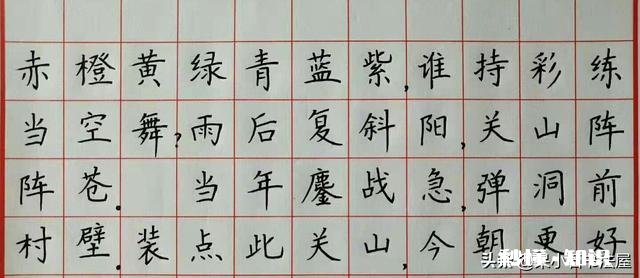 赤橙黄绿青蓝紫,谁持彩练
当空舞?雨后复斜阳,关山阵
阵苍. 当年鏖战急,弹洞前
村壁.装点此关山,今朝更好
秒懂·知识